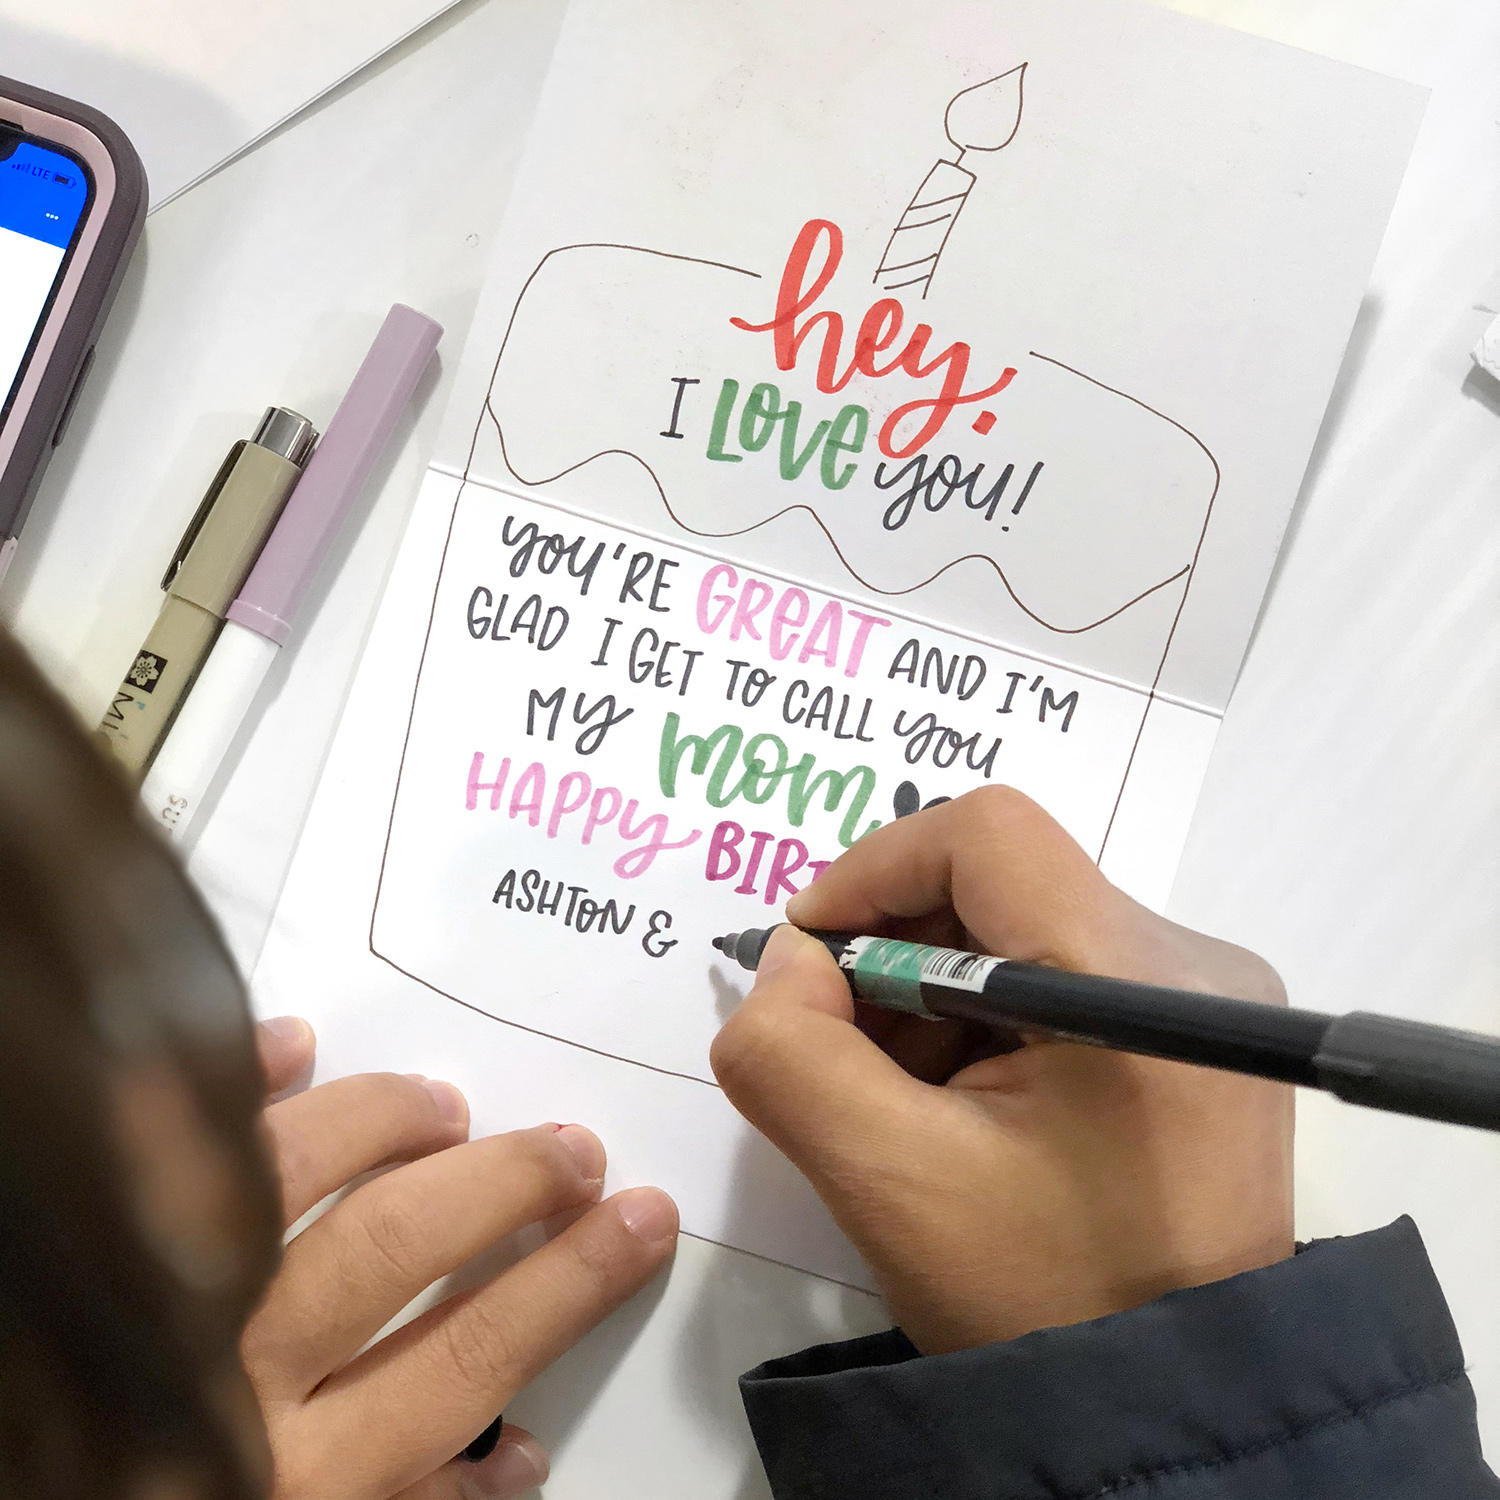 hey,
I Love you!
you're GREAT AND I'M
GLAD I GET TO CALL you
My mom.
HAPPy
ASHTON &
LTE